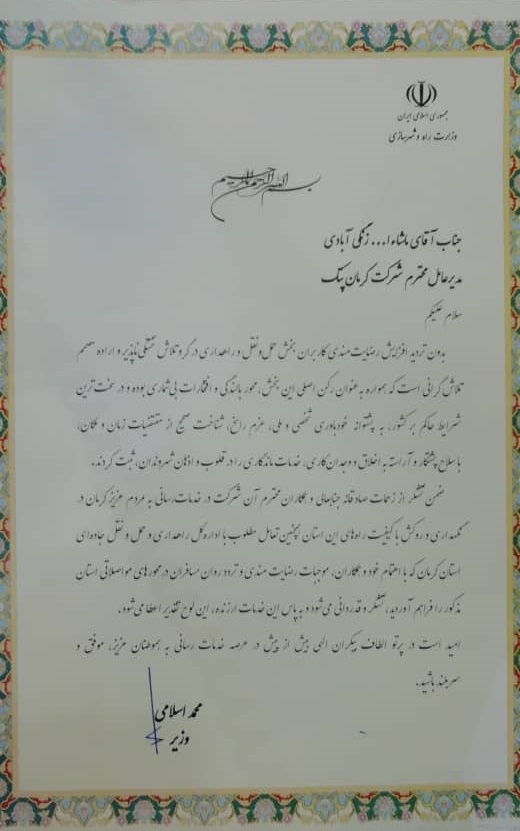 جمهوری اسلامی ایران
وزارت راه و شهرسازی
بسم الله الرحمن الرحیم
جناب آقای ماشاءا... زنگی آبادی
مدیرعامل محترم شرکت کرمان پتک
سلام علیکم
بدون تردید افزایش رضایت مندی کاربران بخش حمل و نقل و راهداری در گرو تلاش خستگی ناپذیر و اراده مصمم
تلاش گرانی است که همواره به عنوان رکن اصلی این بخش، محور بالندگی و افتخارات بی شماری بوده و در سخت ترین
شرایط حاکم بر کشور، به پشتوانه خودباوری شخصی و ملی، عزم راسخ، شناخت صحیح از مقتضیات زمان و مکان،
با سلاح پشتکار و آراسته به اخلاق و وجدان کاری، خدمات ماندگاری را در قلوب و اذهان شهروندان، ثبت کردند.
ضمن تشکر از زحمات صادقانه جنابعالی و همکاران محترم آن شرکت در خدمات رسانی به مردم عزیز کرمان در
نگهداری و روکش با کیفیت راه های این استان همچنین تعامل مطلوب با اداره کل راهداری و حمل و نقل جاده ای
استان کرمان که با اهتمام خود و همکاران، موجبات رضایت مندی و تردد روان مسافران در محورهای مواصلاتی استان
مذکور را فراهم آوردید، تشکر و قدردانی می شود و به پاس این خدمات ارزنده، این لوح تقدیر اعطا می شود.
امید است در پرتو الطاف بیکران الهی بیش از پیش در عرصه خدمات رسانی به هموطنان عزیز، موفق و
سربلند باشید.
محمد اسلامی
وزیر